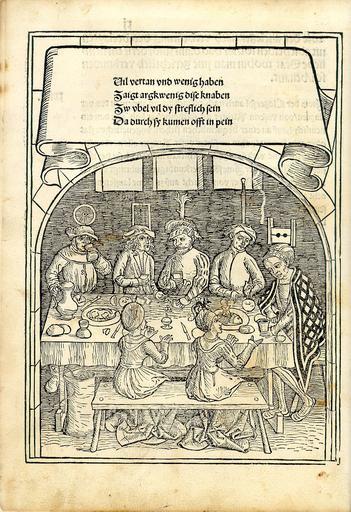 Vil vertan vnd wenig haben
Zaigt argkwenig dise knaben
Zw vbel vil dy streflich sein
Da durch sy kumen offt in pein